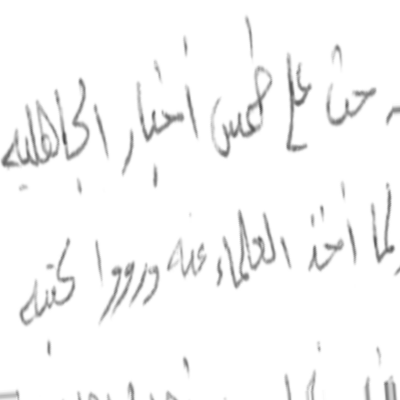 حتى على طمس أخبار الجاهلية
لما أخذ العلماء عنه ورووا كتبه